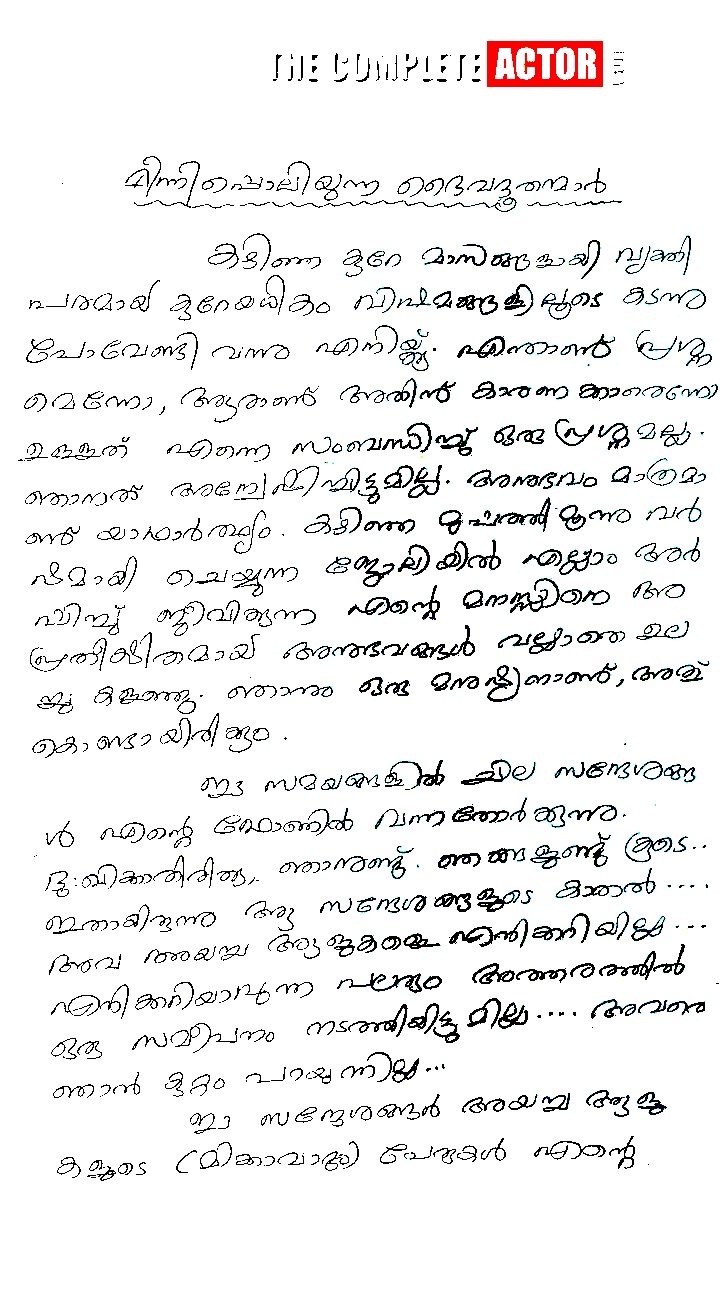 THE COMPLETE ACTOR
മിന്നിപ്പൊലിയുന്ന ദൈവദൂതന്മാർ
കഴിഞ്ഞ കുറേ മാസങ്ങളായി വ്യക്തി
പരമായ് കുറേയധികം വിഷമങ്ങളിലൂടെ കടന്നു
പോവേണ്ടി വന്നു എനിയ്ക്ക്. എന്താണ് പ്രശ്ന
മെന്നോ, ആരാണ് അതിന് കാരണക്കാരെന്നോ
ഉള്ളത് എന്നെ സംബന്ധിച്ച് ഒരു പ്രശ്നമല്ല.
ഞാനത് അന്വേഷിച്ചിട്ടുമില്ല. അനുഭവം മാത്രമാ
ണ് യാഥാർത്ഥ്യം. കഴിഞ്ഞ മുപ്പത്തിമൂന്നു വർ
ഷമായി ചെയ്യുന്ന ജോലിയിൽ എല്ലാം അർ
പ്പിച്ച് ജീവിരുന്ന എന്റെ മനസ്സിനെ അ
പ്രതീക്ഷിതമായ് അനുഭവങ്ങൾ വല്ലാതെ ഉല
ച്ചു കളഞ്ഞു. ഞാനും ഒരു മനുഷ്യനാണ്, അത്
കൊണ്ടായിരിക്കും.
ഈ സമയങ്ങളിൽ ചില സന്ദേശങ്ങ
ൾ എന്റെ ഫോണിൽ വന്നതോർക്കുന്നു.
ദു:ഖിക്കാതിരിക്കൂ, ഞാനുണ്ട്. ഞങ്ങളുണ്ട് കൂടെ..
ഇതായിരുന്നു ആ സന്ദേശങ്ങളുടെ കാതൽ....
അവ അയച്ച ആളുകളെ എനിക്കറിയില്ല...
എനിക്കറിയാവുന്ന പലരും അത്തരത്തിൽ
ഒരു സമീപനം നടത്തിയിട്ടുമില്ല.... അവരെ
ഞാൻ കുറ്റം പറയുന്നില്ല...
ഈ സന്ദേശങ്ങൾ അയച്ച ആളു
കളുടെ (മിക്കവാറും) പേരുകൾ എന്റെ